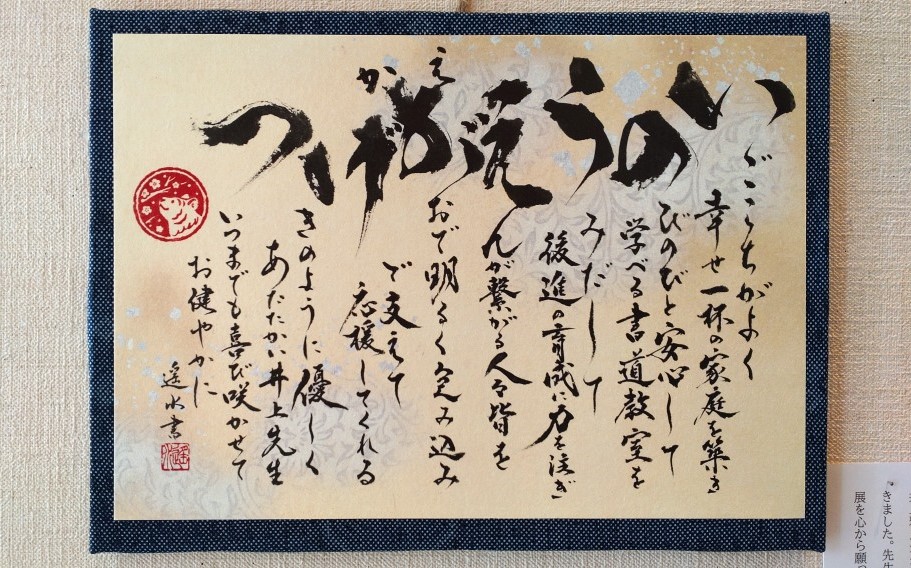 いごこちがよく
幸せ一杯の家庭を築き
のびのびと安心して
学べる書道教室を
うみだして
後進の育成に力を注ぎ
えんが繋がる人々皆を
えがおで明るく包み込み
かげで支えて
応援してくれる
つきのように優しく
あたたかい井上先生
いつまでも喜び咲かせて
お健やかに
遥水書
きました。先生
展を心から願っ